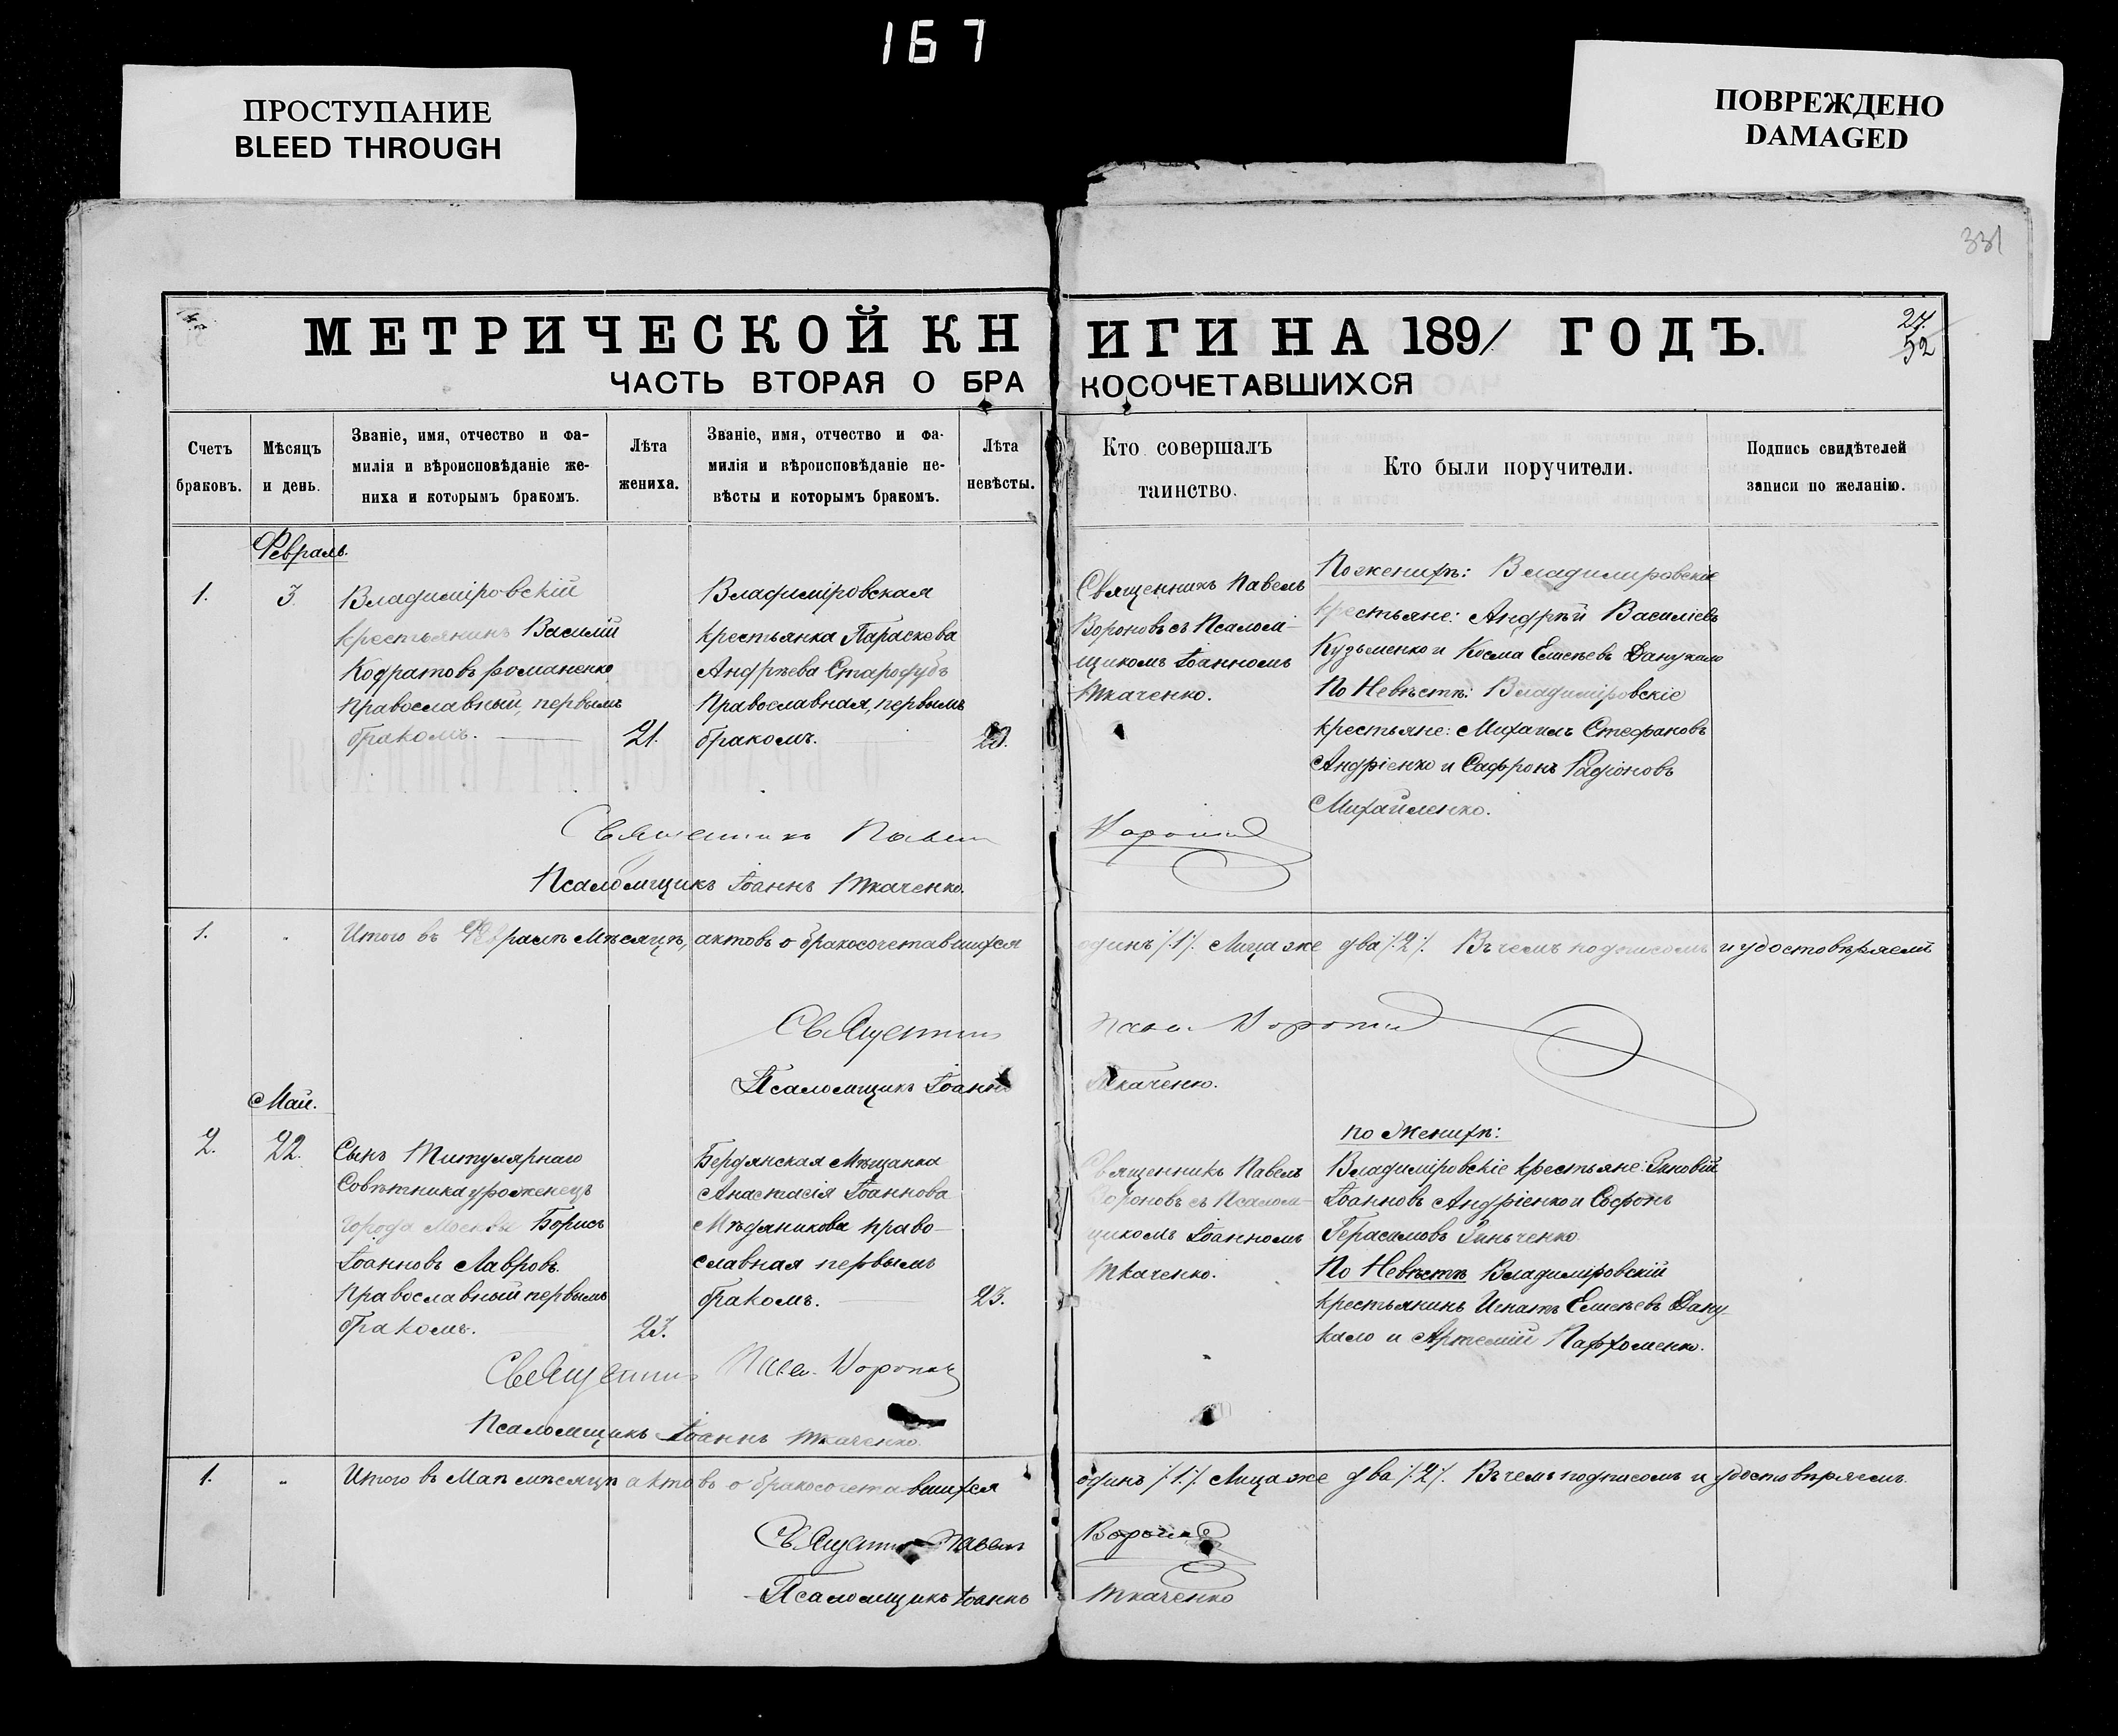 167
ПРОСТУПАНИЕ
BLEED THROUGH
ПОВРЕЖДЕНО
DAMAGED
331
МЕТРИЧЕСКОЙ КНИГИ НА 1891 ГОДЪ.
27.
52
ЧАСТЬ ВТОРАЯ О БРАКОСОЧЕТАВШИХСЯ
Счетъ
браковъ.
Мѣсяцъ
и день.
Званіе, имя, отчество и фа-
милія и вѣроисповѣданіе же-
ниха и которымъ бракомъ.
Лѣта
жениха.
Званіе, имя, отчество и фа-
милія и вѣроисповѣданіе не-
вѣсты и которымъ бракомъ.
Лѣта
невѣсты.
Кто совершалъ
таинство.
Кто были поручители.
Подпись свидѣтелей
записи по желанію.
Февраль.
1.
3.
Владиміровскій
крестьянинъ Василій
Кодратовъ Романенко
Православный, первымъ
бракомъ.
21.
Владиміровская
крестьянка Параскева
Андрѣева Стародубъ
Православная, первымъ
бракомъ.
20.
Священникъ Павелъ
Вороновъ съ Псалом-
щикомъ Іоанномъ
Ткаченко.
По женихѣ: Владиміровскіе
крестьяне: Андрѣй Василіевъ
Кузьменко и Косма Елисѣевъ Данукало
По Невѣстѣ: Владиміровскіе
крестьяне: Михаилъ Стефановъ
Андріенко и Сафронъ Радіоновъ
Михайленко.
Священникъ Павелъ Вороновъ
Псаломщикъ Іоаннъ Ткаченко.
1.
Итого въ Февралѣ мѣсяцѣ, актовъ о бракосочетавшихся одинъ /.1./. Лица же два /.2./. Въ чемъ подписомъ и удостовѣряемъ
Священникъ Павелъ Вороновъ
Псаломщикъ Іоаннъ Ткаченко.
Май.
2.
22.
Сынъ Титулярнаго
Совѣтника уроженецъ
города Москвы Борисъ
Іоанновъ Лавровъ.
Православный первымъ
бракомъ.
23.
Бердянская Мѣщанка
Анастасія Іоаннова
Мѣдяникова право-
славная первымъ
бракомъ.
23.
Священникъ Павелъ
Вороновъ съ Псалом-
щикомъ Іоанномъ
Ткаченко.
по Женихѣ:
Владиміровскіе крестьяне: Зиновій
Іоанновъ Андріенко и Софронъ
Герасимовъ Зинченко.
По Невѣстѣ Владиміровскій
крестьянинъ Игнатъ Елисѣевъ Дану
кало и Артемій Парфоменко.
Священникъ Павелъ Вороновъ
Псаломщикъ Іоаннъ Ткаченко.
1.
Итого въ Маѣ мѣсяцѣ актовъ о бракосочетавшихся одинъ /.1./. Лица же два /.2./. Въ чемъ подписомъ и удостовѣряемъ.
Священникъ Павелъ Вороновъ
Псаломщикъ Іоаннъ Ткаченко